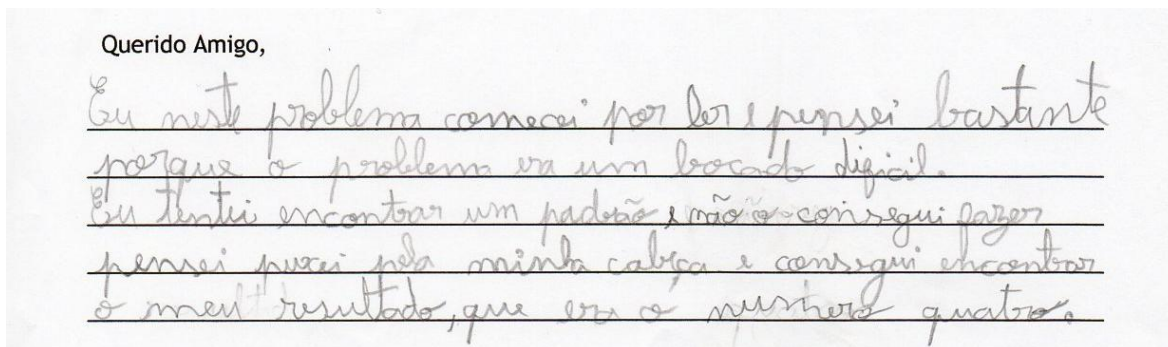 Querido Amigo,
Eu neste problema comecei por ler e pensei bastante
porque o problema era um bocado dificil.
Eu tentei encontrar um padrão e não o consegui fazer
pensei puxei pela minha cabeça e consegui encontrar
o meu resultado, que era o numero quatro.